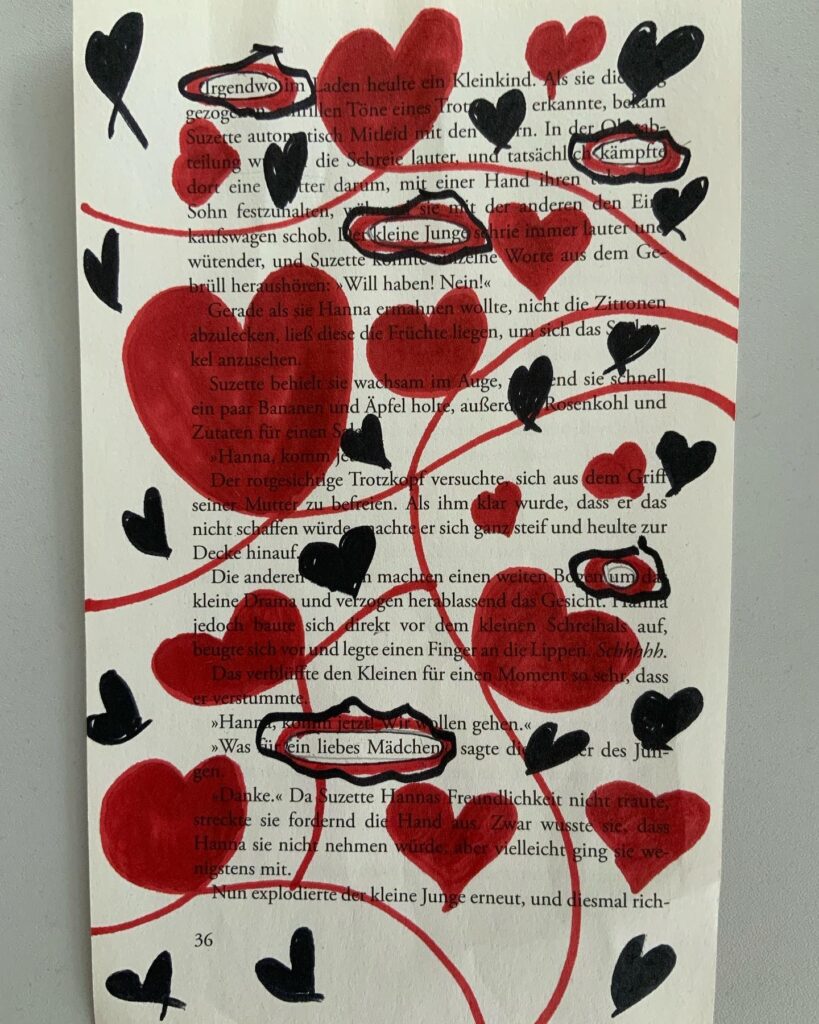 Irgendwo im Laden heulte ein Kleinkind. Als sie die
gezogenen schrillen Töne eines erkannte, bekam
Suzette automatisch Mitleid mit den In der
teilung die Schreie lauter, und tatsächlich kämpfte
dort eine Mutter darum, mit einer Hand ihren
Sohn festzuhalten, während sie mit der anderen den Ein-
kaufswagen schob. Der kleine Junge schrie immer lauter und
wütender, und Suzette konnte einzelne Worte aus dem Ge-
brüll heraushören: »Will haben! Nein!«
Gerade als sie Hanna ermahnen wollte, nicht die Zitronen
abzulecken, ließ diese die Früchte liegen, um sich das
kel anzusehen.
Suzette behielt sie wachsam im Auge, während sie schnell
ein paar Bananen und Äpfel holte, außerdem Rosenkohl und
Zutaten für einen
»Hanna, komm
Der rotgesichtige Trotzkopf versuchte, sich aus dem Griff
seiner Mutter zu befreien. Als ihm klar wurde, dass er das
nicht schaffen würde, machte er sich ganz steif und heulte zur
Decke hinauf.
Die anderen machten einen weiten Bogen um das
kleine Drama und verzogen herablassend das Gesicht. Hanna
jedoch baute sich direkt vor dem kleinen Schreihals auf,
beugte sich vor und legte einen Finger an die Lippen. Schhhhh.
Das verblüffte den Kleinen für einen Moment so sehr, dass
er verstummte.
»Hanna, komm jetzt! Wir wollen gehen.«
»Was für ein liebes Mädchen, sagte die Mutter des Jun-
gen.
»Danke.« Da Suzette Hannas Freundlichkeit nicht traute,
streckte sie fordernd die Hand aus. Zwar wusste sie, dass
Hanna sie nicht nehmen würde, aber vielleicht ging sie we-
nigstens mit.
Nun explodierte der kleine Junge erneut, und diesmal rich-
36